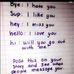 Bye: I hate you
Sup: I like you
hey: I miss you
hello: I love you
hi: will you go out with me?
post this on your status and see people message you